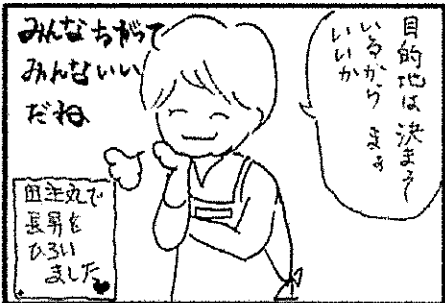 目的地は決まって
いるから まぁ
いいか
みんなちがって
みんないい
だね
田主丸で
長男を
ひろい
ました